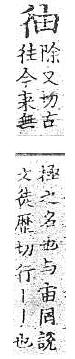 㣙
除又切古
往今来無
極之名也与宙同說
文徒歴切行丨丨也